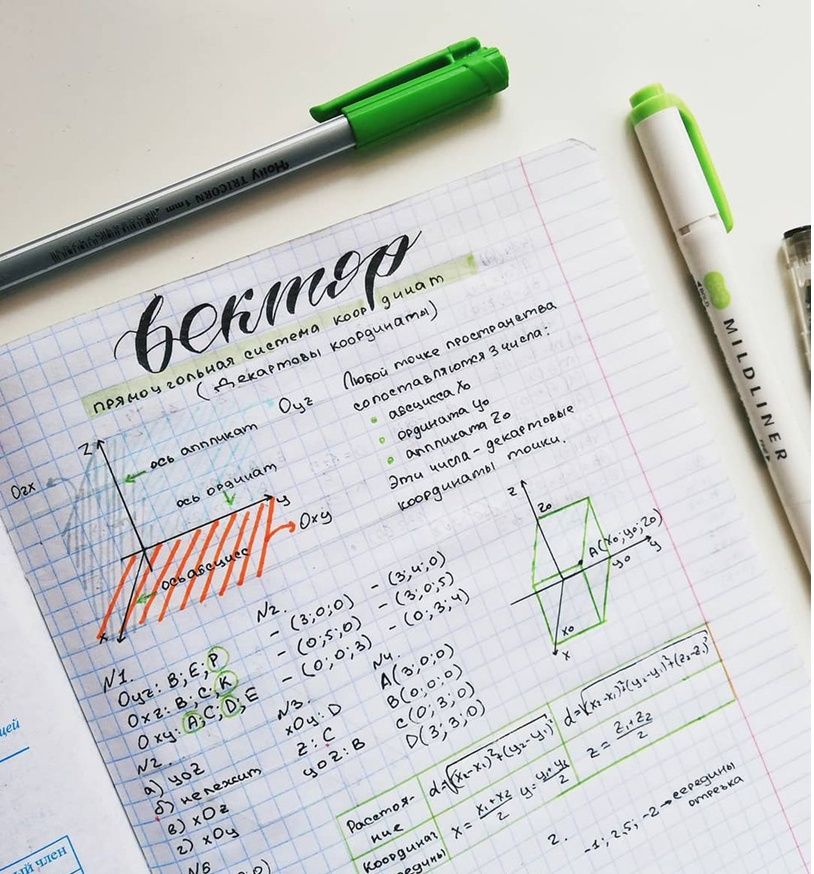 Hony TRICORN 1mm
MILDLINER
вектор
прямоугольная система координат
(Декартовы координаты)
Любой точке пространства
сопоставляются 3 числа:
• абсцисса x₀
• ордината y₀
• аппликата z₀
Эти числа - декартовые
координаты точки.
Oyz
z
ось аппликат
Ozx
ось ординат
y
Oxy
ось абсцисс
x
z
z₀
A(x₀; y₀; z₀)
y₀
y
x₀
x
N1.
Oyz: B; E; P
Oxz: B; C; K
Oxy: A; C; D; E
N2.
а) yoz
б) не лежит
в) xOz
г) xOy
N2.
- (3;0;0) - (3;4;0)
- (0;5;0) - (3;0;5)
- (0;0;3) - (0;3;4)
N3.
xOy: D
z: C
yoz: B
N4.
A(3;0;0)
B(0;0;0)
C(0;3;0)
D(3;3;0)
Расстоя-
ние
d=√(x₂-x₁)²+(y₂-y₁)²
d=√(x₂-x₁)²+(y₂-y₁)²+(z₂-z₁)²
x = x₁+x₂/2 y = y₁+y₂/2
z = z₁+z₂/2
2.
-1; 2,5; -2 → середины
отрезка
ый член